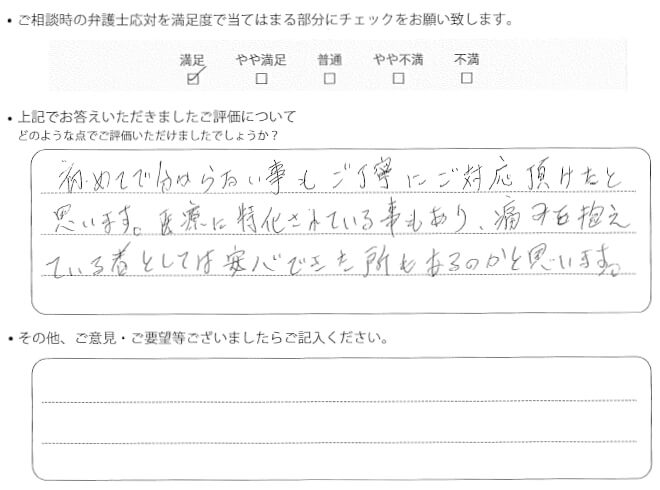 ・ご相談時の弁護士応対を満足度で当てはまる部分にチェックをお願い致します。
満足 やや満足 普通 やや不満 不満
☑ ☐ ☐ ☐ ☐
・上記でお答えいただきましたご評価について
どのような点でご評価いただけましたでしょうか？
初めてで分からない事もご丁寧にご対応頂けたと
思います。医療に特化されている事もあり、痛みを抱え
ている者としては安心できた所もあるのかと思います。
・その他、ご意見・ご要望等ございましたらご記入ください。